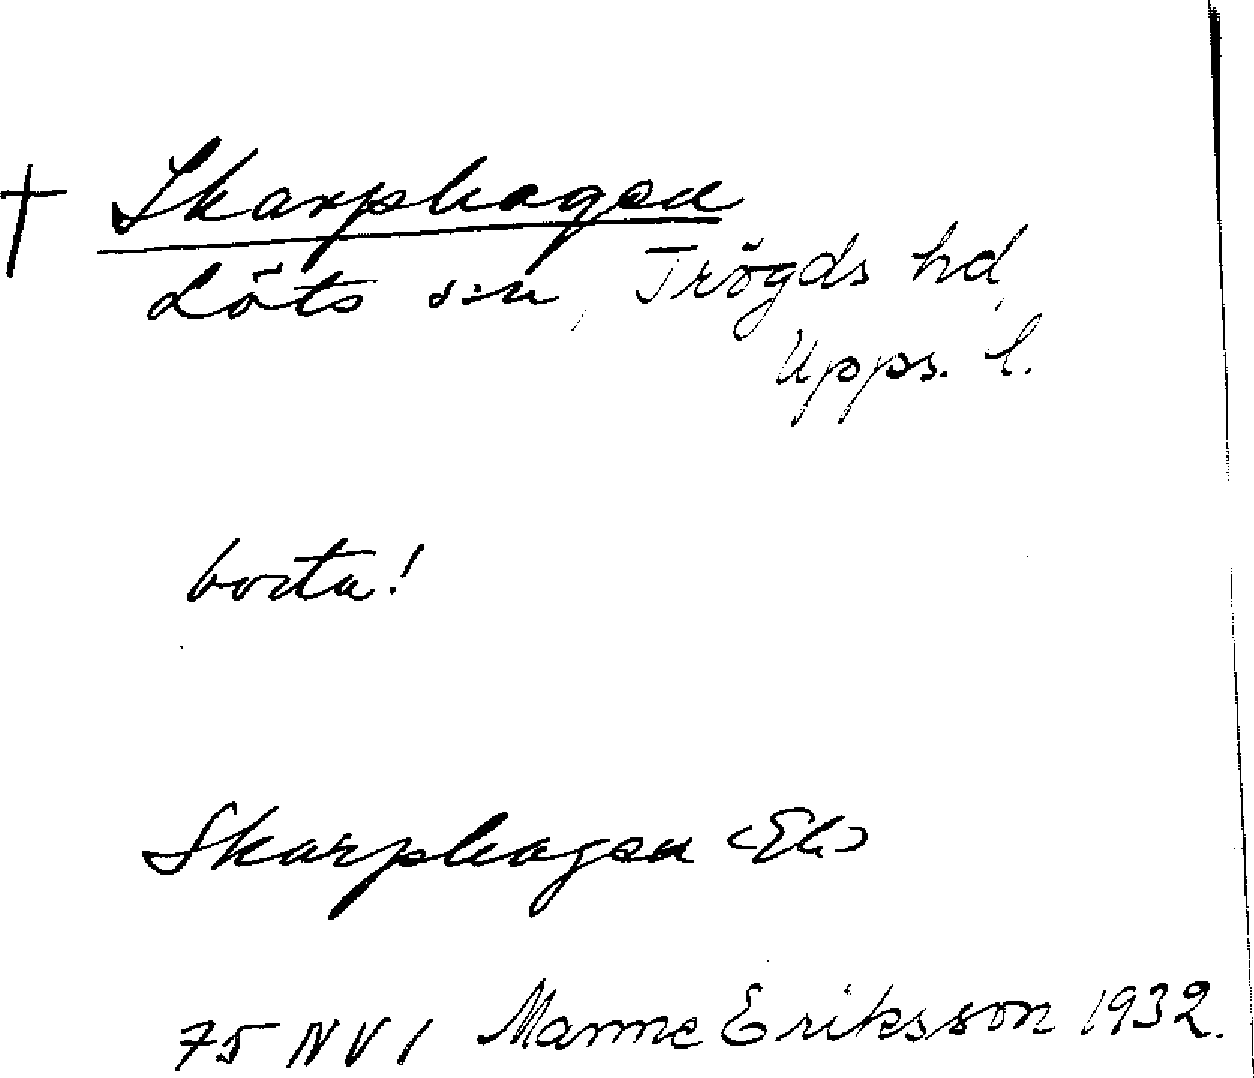 † Skarphagen
Löts s:n, Trögds hd,
Upps. l.
borta!
Skarphagen (Ek)
75 NV 1 Manne Eriksson 1932.